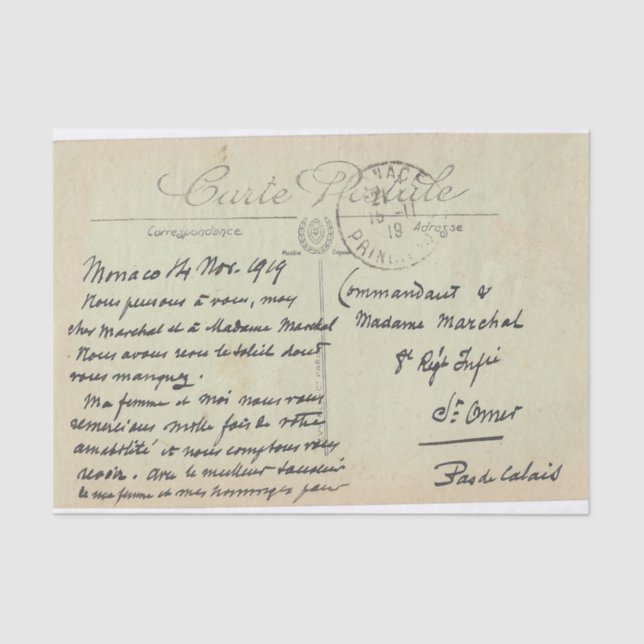 Carte Postale
MONACO
15-11
19
PRINC
Correspondance
Adresse
Modèle
Monaco 14 Nov. 1919
Nous pensons à vous, mon
cher Marchal et à Madame Marchal
. Nous avons revu le soleil dont
vous manquez.
Ma femme et moi nous vous
remercions mille fois de votre
amabilité et nous comptons vous
revoir. Avec le meilleur souvenir
de ma femme et mes hommages pour
Commandant &
Madame Marchal
8e Régt Infie
St Omer
Pas de Calais